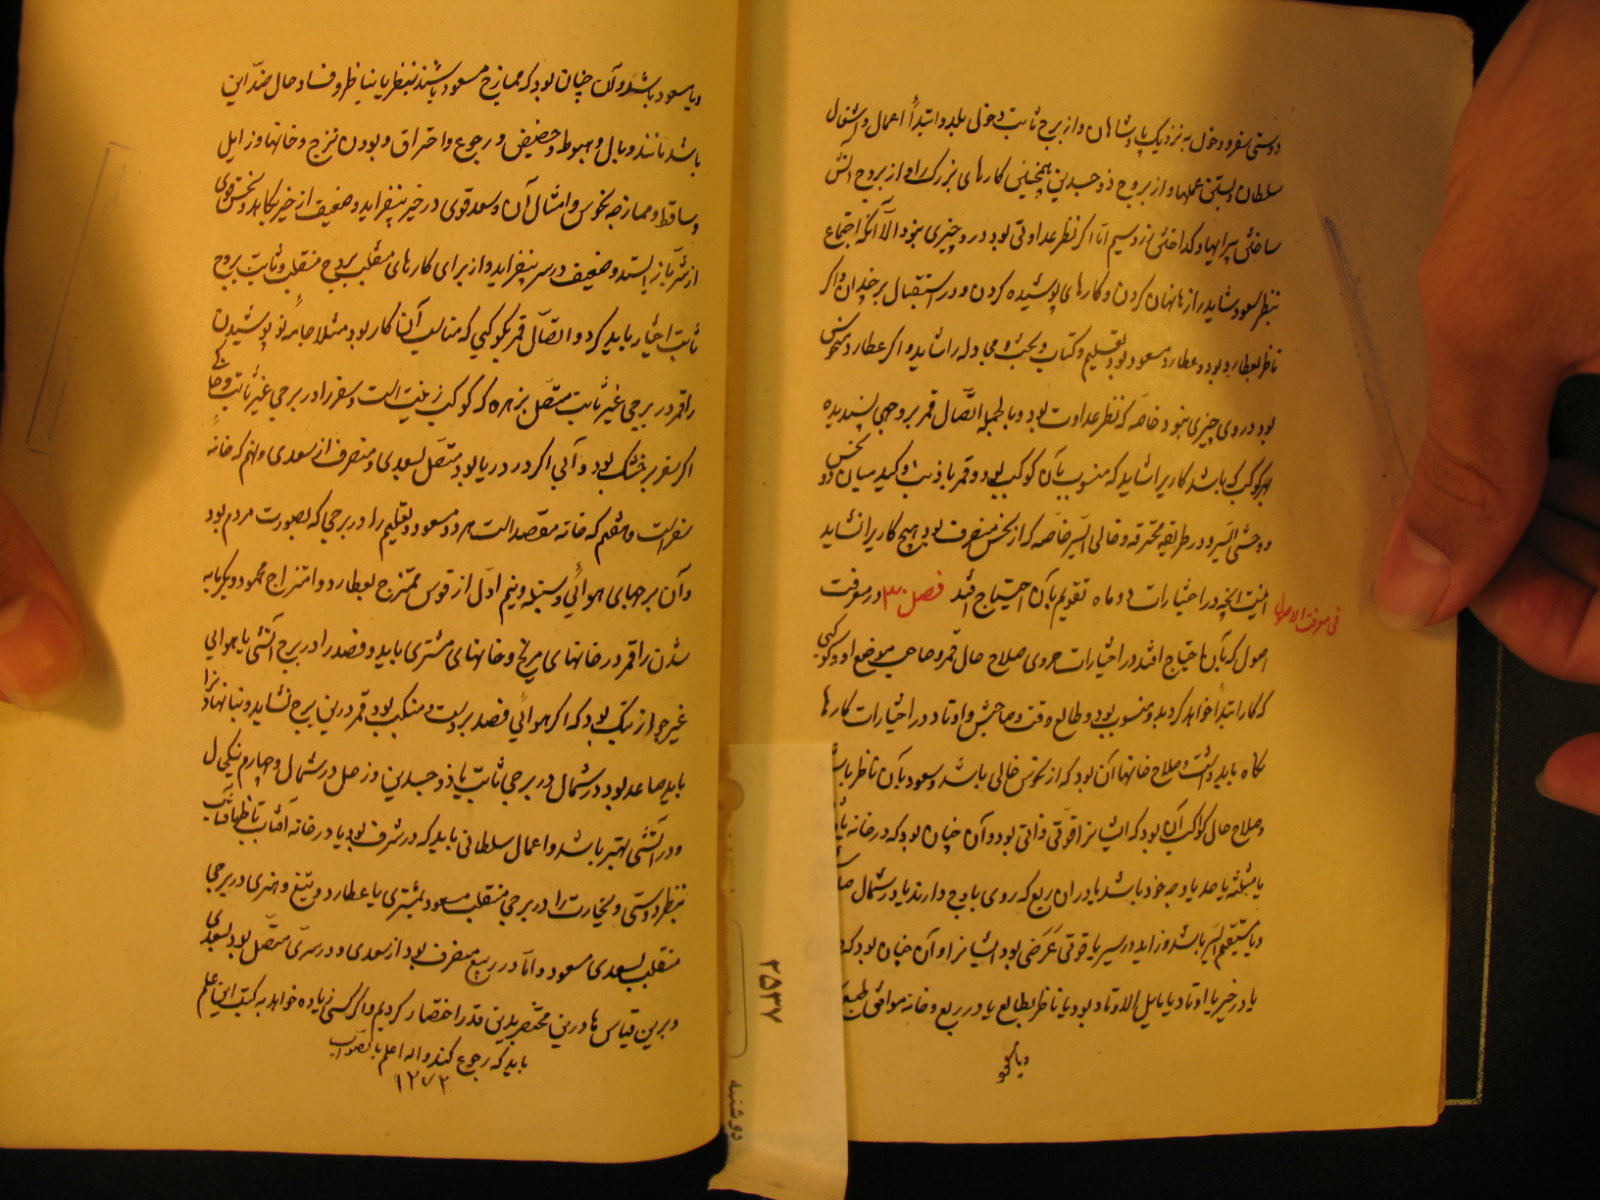 دوستی و سفر و دخول به نزدیک پادشاهان و از برج ثابت دخول بلد و ابتداٴ اعمال و اشغال
سلطان و بستن عملها و از بروج ذوجسدین همچنین کارهای بزرک را و از بروج آتشی
ساختن پیرایها و کداختن زر و سیم امّا اکر نظر عداوتی بود در و چیزی نبود الّا آنکه اجتماع
بنظر سعود شاید رازها نهان کردن و کارهای پوشیده کردن و در استقبال برخی دان و اکر
ناظر بعطارد بود و عطارد مسعود بود تعلیم و کتاب و بحث و مجادله را شاید و اکر عطارد منحوس
بود در وی چیزی نبود خاصّه که نظر عداوت بود و بالجمله اتّصال قمر بر وجهی پسندیده
بهر کوکب که باشد کاریرا شاید که منسوب بآن کوکب بود و قمر با ذنب و کید میان دو نحس
و وحشی السیر و در طریقه محترقه و خالی السیر خاصّه که از نحس منصرف بود هیچ کاریرا نشاید
اینست آنچه در اختیارات دو ماه تقویم بآن احتیاج افتد فصل ۳۰ در معرفت
فی معرفت الاصول
اصول که بآنها احتیاج افتد در اختیارات جزوی صلاح حال قمر و صاحب موضع او و کوکبی
که کار ابتدا خواهد کرد بدو منسوب بود و طالع وقت و صاحبش و اوتاد در اختیارات کارها
نکاه باید داشت و صلاح خانها آن بود که از نحوس خالی باشد و سعود بآن ناظر باشد
و صلاح حال کواکب آن بود که ایشانرا قوّتی ذاتی بود و آن چنان بود که در خانه یا
یا مثلثه یا حد یا وجه خود باشد یا در ان ربع که روی باوج دارند یا در شمال
و یا مستقیم السیر باشد و زاید در سیر یا قوتی عَرَضی بود ایشانرا و آن چنان بود که
یا در خیر یا اوتاد یا مایل الاوتاد بود یا ناظر بطالع یا در ربع و خانه موافق
و یا مسعود
و یا مسعود باشد و آن چنان بود که ممازج مسعود باشند بنظر یا بتناظر و فساد حال ضدّ این
باشد مانند وبال و هبوط و حضیض و رجوع و احتراق و بودن نزج و خانها زایل
و ساقط و ممازجه نحوس و امثال آن و سعد قوی در خیر بیفزاید و ضعیف از خیر بکاهد و نحس قوی
از شر باز ایستد و ضعیف در سر بیفزاید و از برای کارهای منقلب بروج منقلب و ثابت بروج
ثابت اختیار باید کرد و اتّصال قمر بکوکبی که مناسب آن کار بود مثلا جامهٔ نو پوشیدن
را قمر در برجی غیر ثابت متّصل بزهره که کوکب زینت است و سفر را در برجی غیر ثابت و خاکی
اکر سفر بر خشک بود و آبی اکر در دریا بود متّصل بسعدی و منصرف از سعدی و نهم که خانهٔ
سفر است و هفتم که خانه مقصد است هر دو مسعود و تعلیم را در برجی که بصورت مردم بود
و آن برجهای هوائی و سنبله و نیم اوّل از قوس ممتزج بعطارد و امتزاج محمود و بکرمابه
شدن را قمر در خانهای مریخ و خانهای مشتری باید و فصد را در برج آتشی یا هوایی
غیر جوزا نزدیک بود که اکر هوائی فصد بر دست و منکب بود قمر درین برج نشاید و بنا نهادن را
باید صاعد بود در شمال در برجی ثابت یا ذوجسدین و زحل در شمال و چهارم نیکی حال
و در آتشی بهتر باشد و اعمال سلطانی باید که در شرف بود یا در خانهٔ آفتاب یا ناظر بآفتاب
بنظر دوستی و تجارت را در برجی منقلب مسعود بمشتری یا عطارد و بیع و شری در برجی
منقلب بسعدی مسعود و امّا در بیع منصرف بود از سعدی و در شری متّصل بود بسعدی
و برین قیاس ها درین مختصر بدین قدر اختصار کردیم و اکر کسی زیاده خواهد به کتب این علم
باید که رجوع کند و الله اعلم بالصواب
۱۲۷۲
۲۵۳۷
دوشنبه